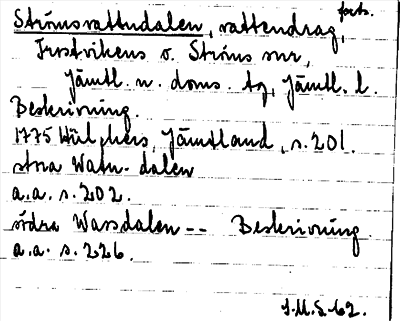 Strömsvattudalen, vattendrag, forts.
Frostvikens o. Ströms snr,
Jämtl. n. doms. tg, Jämtl. l.
Beskrivning.
1775 Hülphers, Jämtland, s. 201.
stora Watn-dalen
a.a. s. 202.
södra Wassdalen -- Beskrivning.
a.a. s. 226.
J.M.S-62.